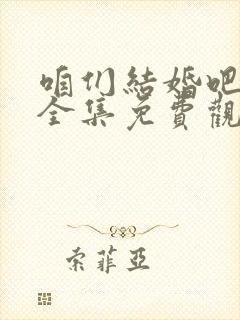 咱们結婚吧
全集免費觀
索菲亞